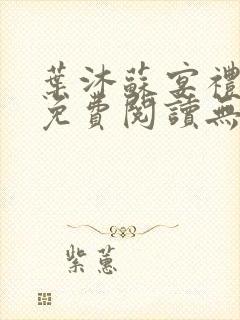 葉沐蘇宴禮
免費閱讀無
紫蕙